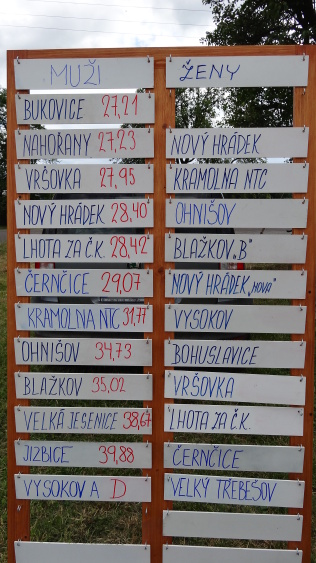 MUŽI
BUKOVICE 27,21
NAHOŘANY 27,23
VRŠOVKA 27,95
NOVÝ HRÁDEK 28,40
LHOTA ZA Č.K. 28,42
ČERNČICE 29,07
KRAMOLNA NTC 31,77
OHNIŠOV 34,73
BLAŽKOV 35,02
VELKÁ JESENICE 38,67
JIZBICE 39,88
VYSOKOV A D
ŽENY
NOVÝ HRÁDEK
KRAMOLNA NTC
OHNIŠOV
BLAŽKOV „B"
NOVÝ HRÁDEK „NOVÁ"
VYSOKOV
BOHUSLAVICE
VRŠOVKA
LHOTA ZA Č.K.
ČERNČICE
VELKÝ TŘEBEŠOV